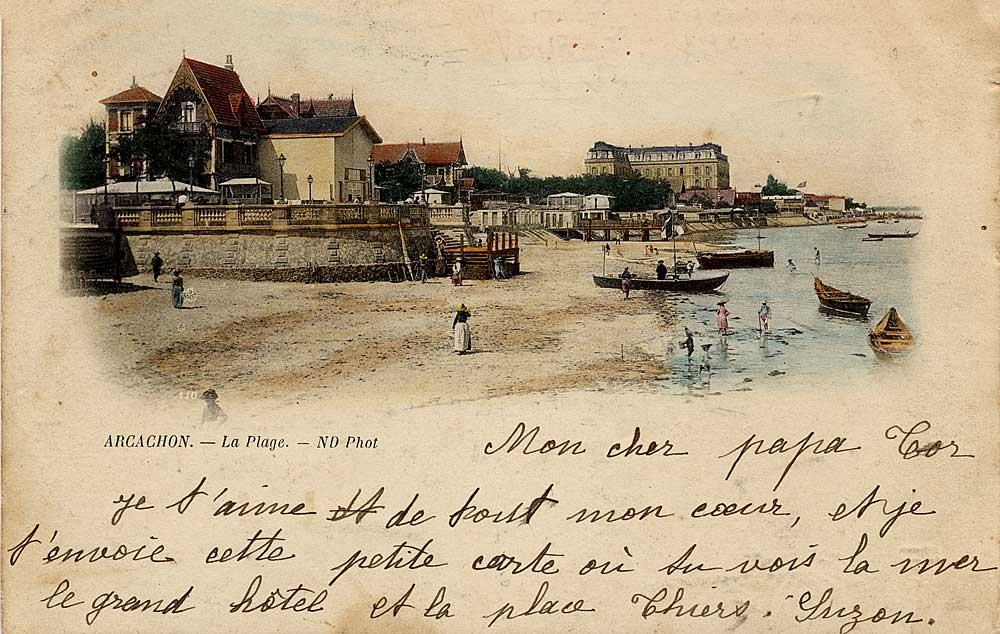 110
ARCACHON. — La Plage. — ND Phot
Mon cher papa Tor
je t'aime et de tout mon cœur, et je
t'envoie cette petite carte où tu vois la mer
le grand hôtel et la place Thiers. Suzon.